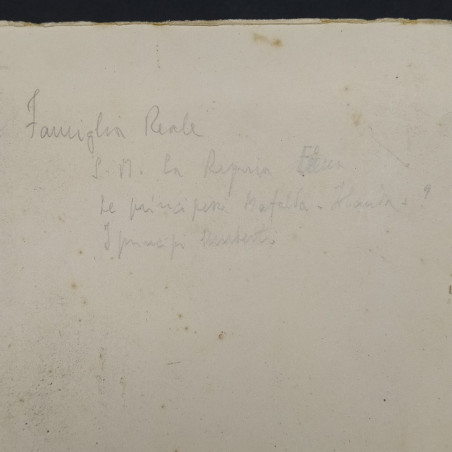 Famiglia Reale
S. M. la Regina Elena
Le principesse Mafalda e Iolanda
I principi Umberto